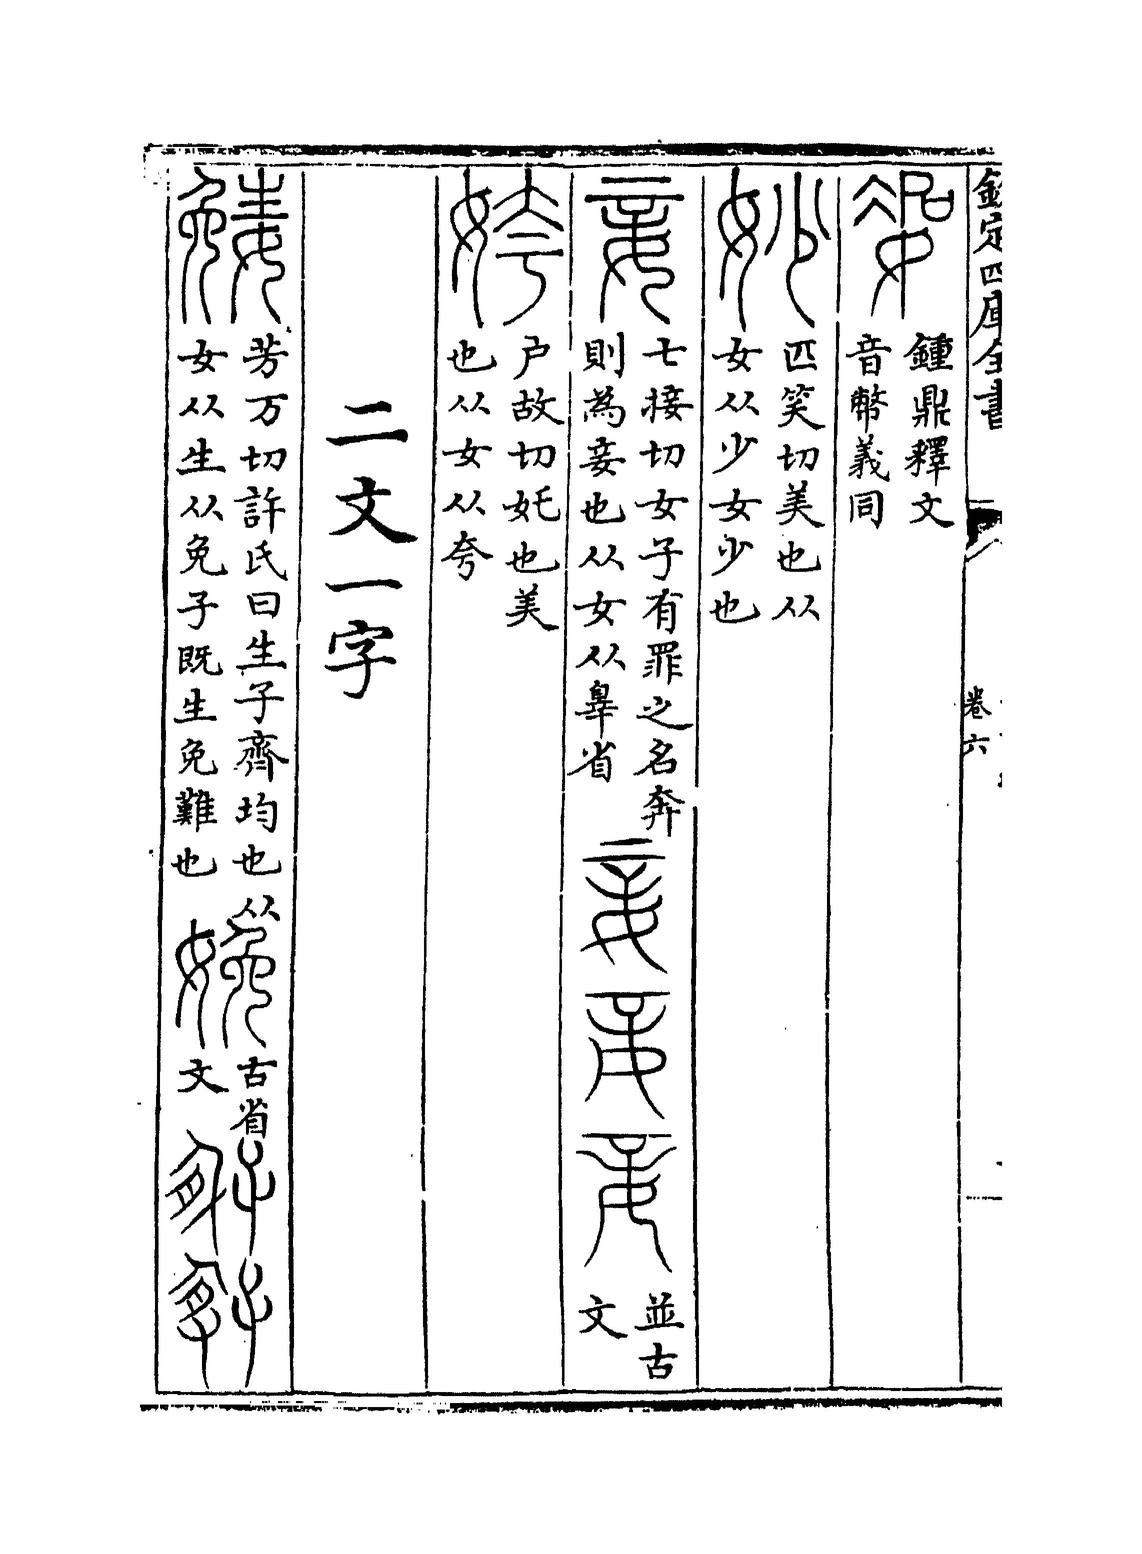 欽定四庫全書
卷六
鍾鼎釋文
音幣義同
妙
匹笑切美也从
女从少女少也
妾
七接切女子有罪之名奔
則為妾也从女从辠省
並古
文
姱
户故切妅也美
也从女从夸
二文一字
芳万切許氏曰生子齊均也从
女从生从免子既生免難也
古省
文